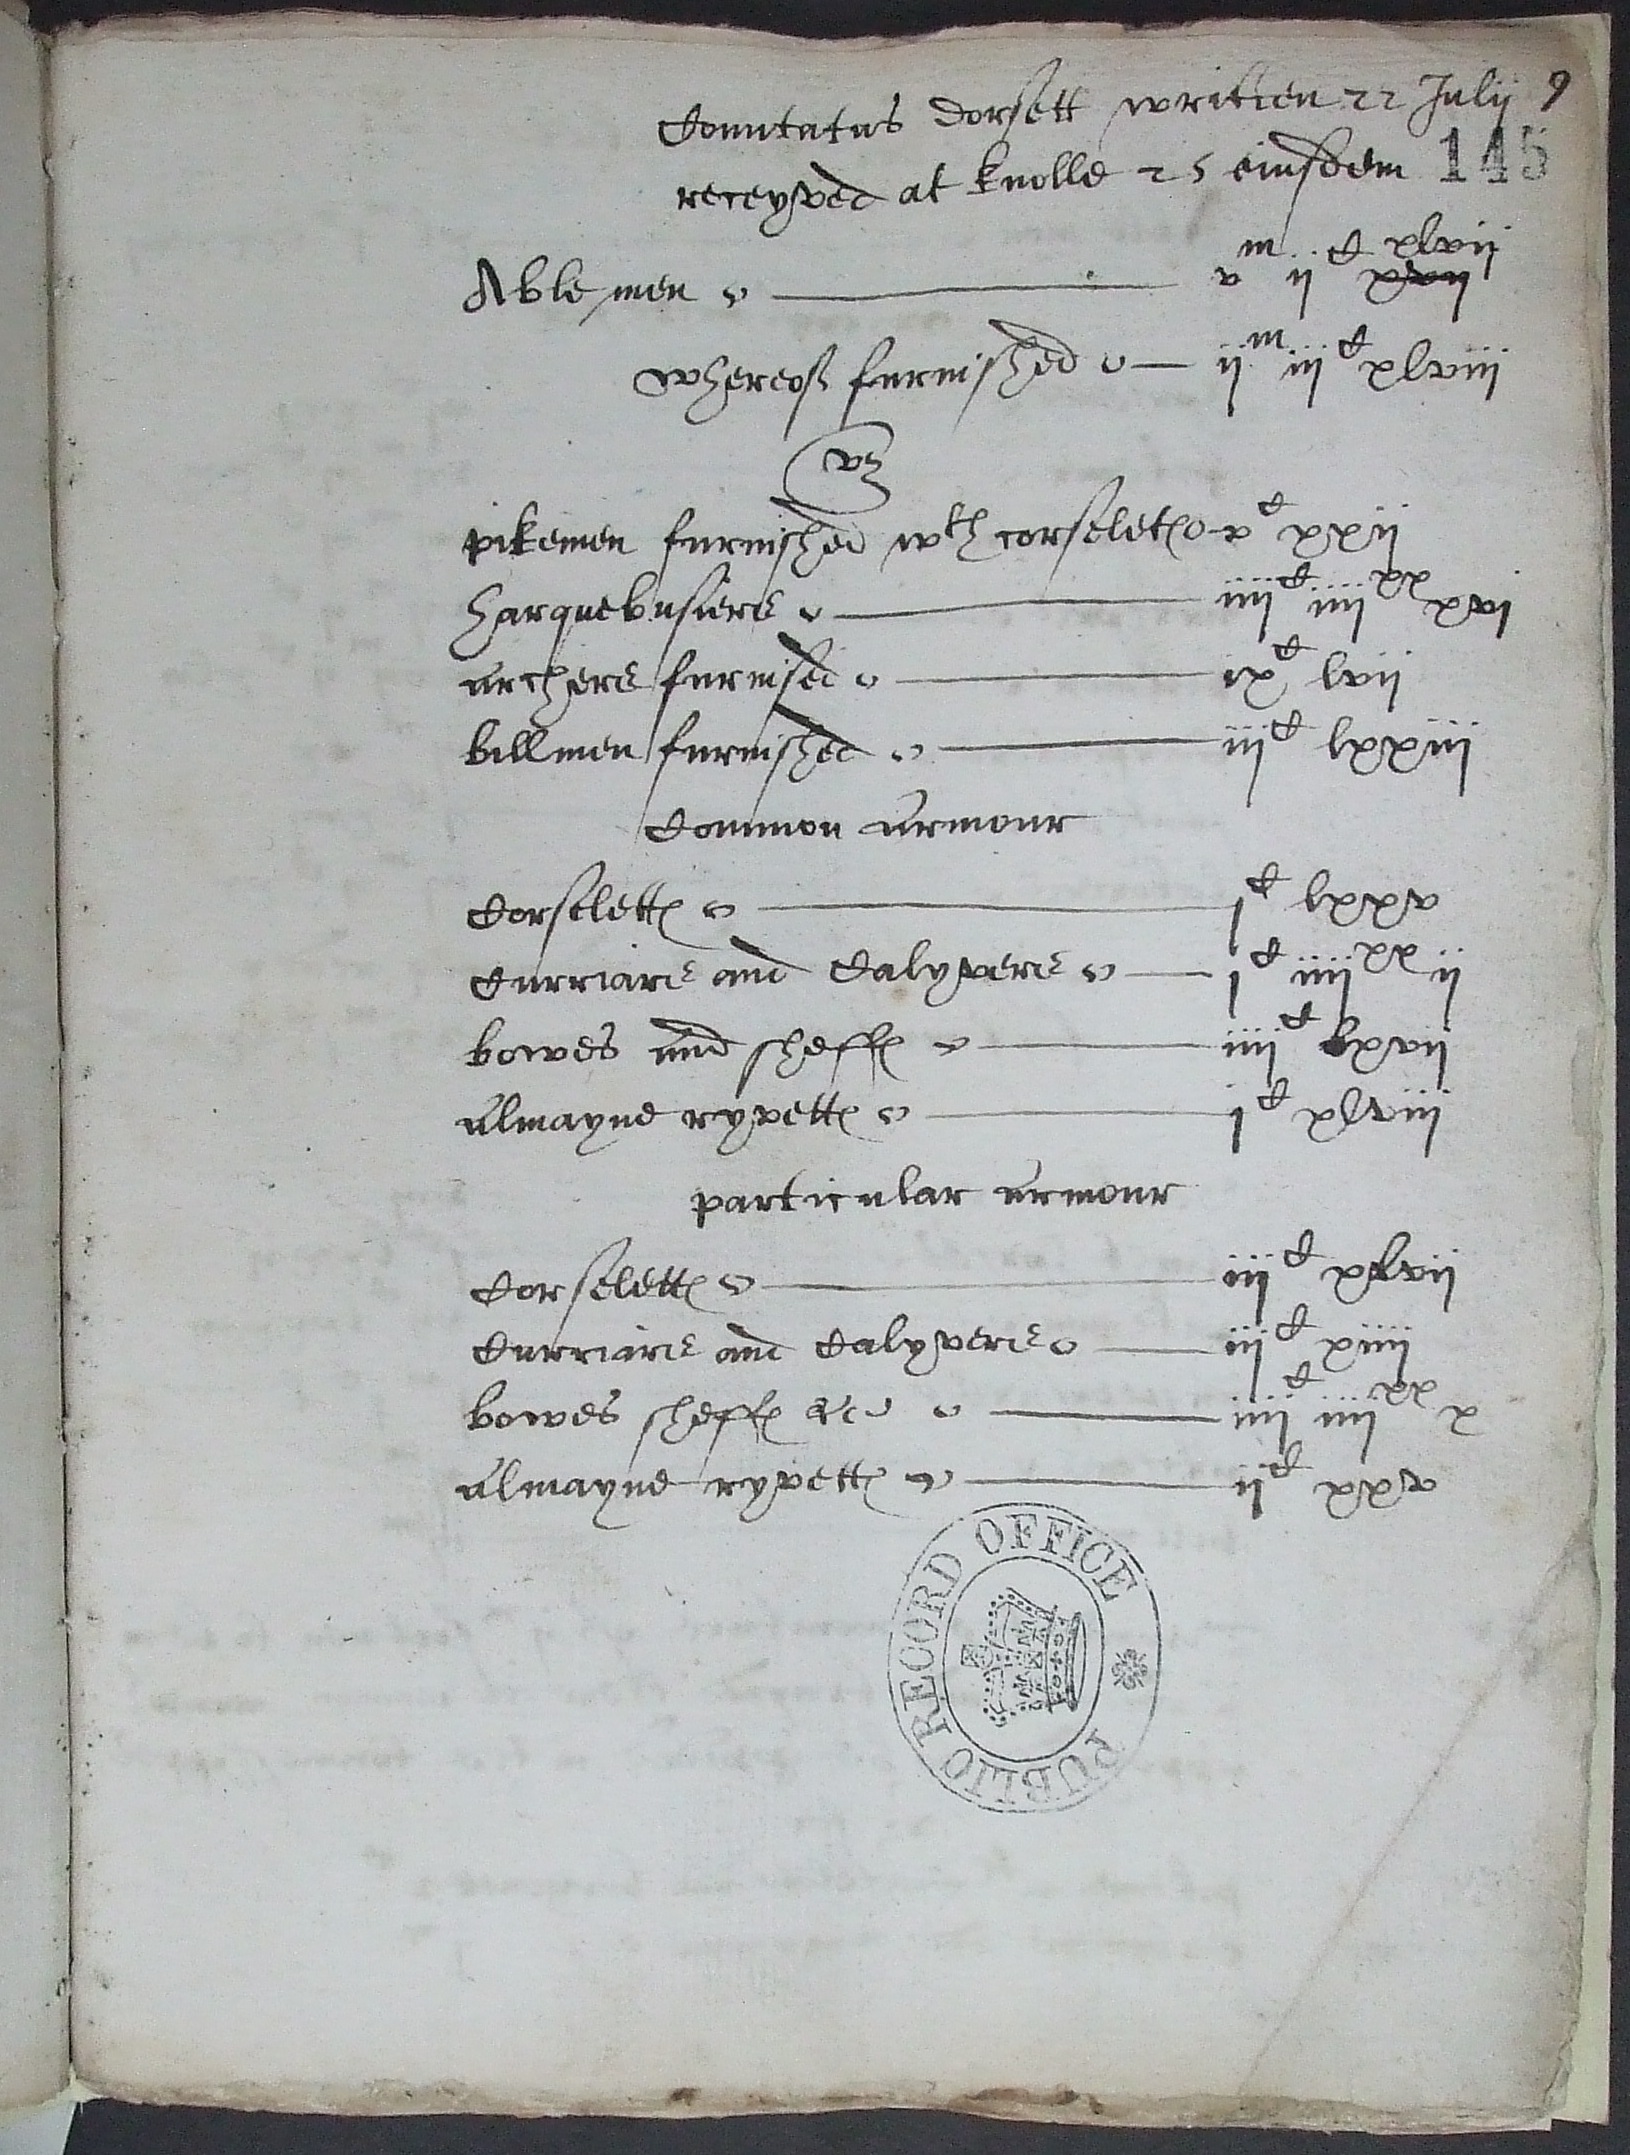 Comitatus dorsett written 22 Julij 9
receyved at knolle 25 eiusdem 145
xlvii
Able men v^m ii^C xvii
whereof furnished ii^m iii^C xlviii
vz
pikemen furnished w^th corseletes v^C xxii
harquebusiers iiii^C iiii^xx xvi
archers furnised ix^C lvii
billmen furnished iii^C lxxiii
Common armour
Corseletts i^C lxxv
Curriars and Calyvers i^C iiii^xx ii
bowes and sheffes iiii^C lxvii
almayne ryvettes i^C xlviii
particular armour
Corseletts iii^C xlvii
Curriars and Calyvers iii^C xiiii
bowes sheffes &c iiii^C iiii^xx x
almayne ryvettes ii^C xxv
PUBLIC RECORD OFFICE